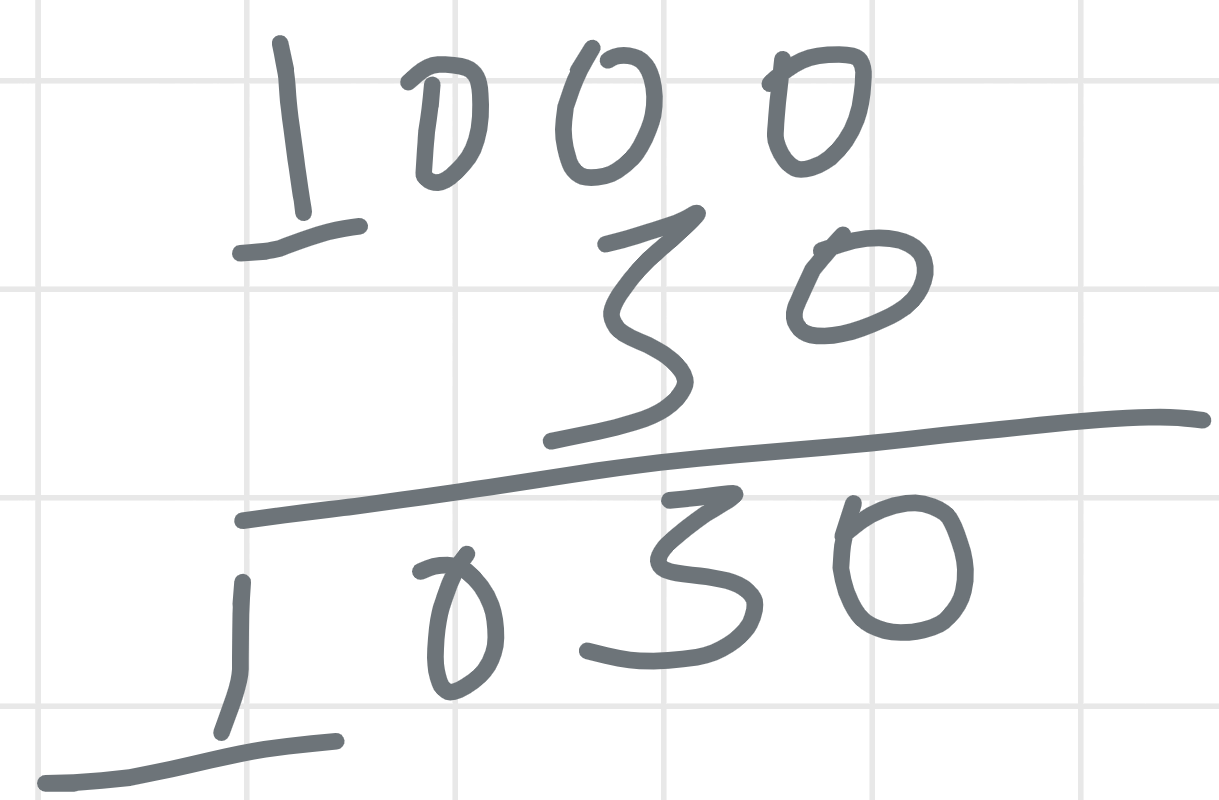 1000
30
1030